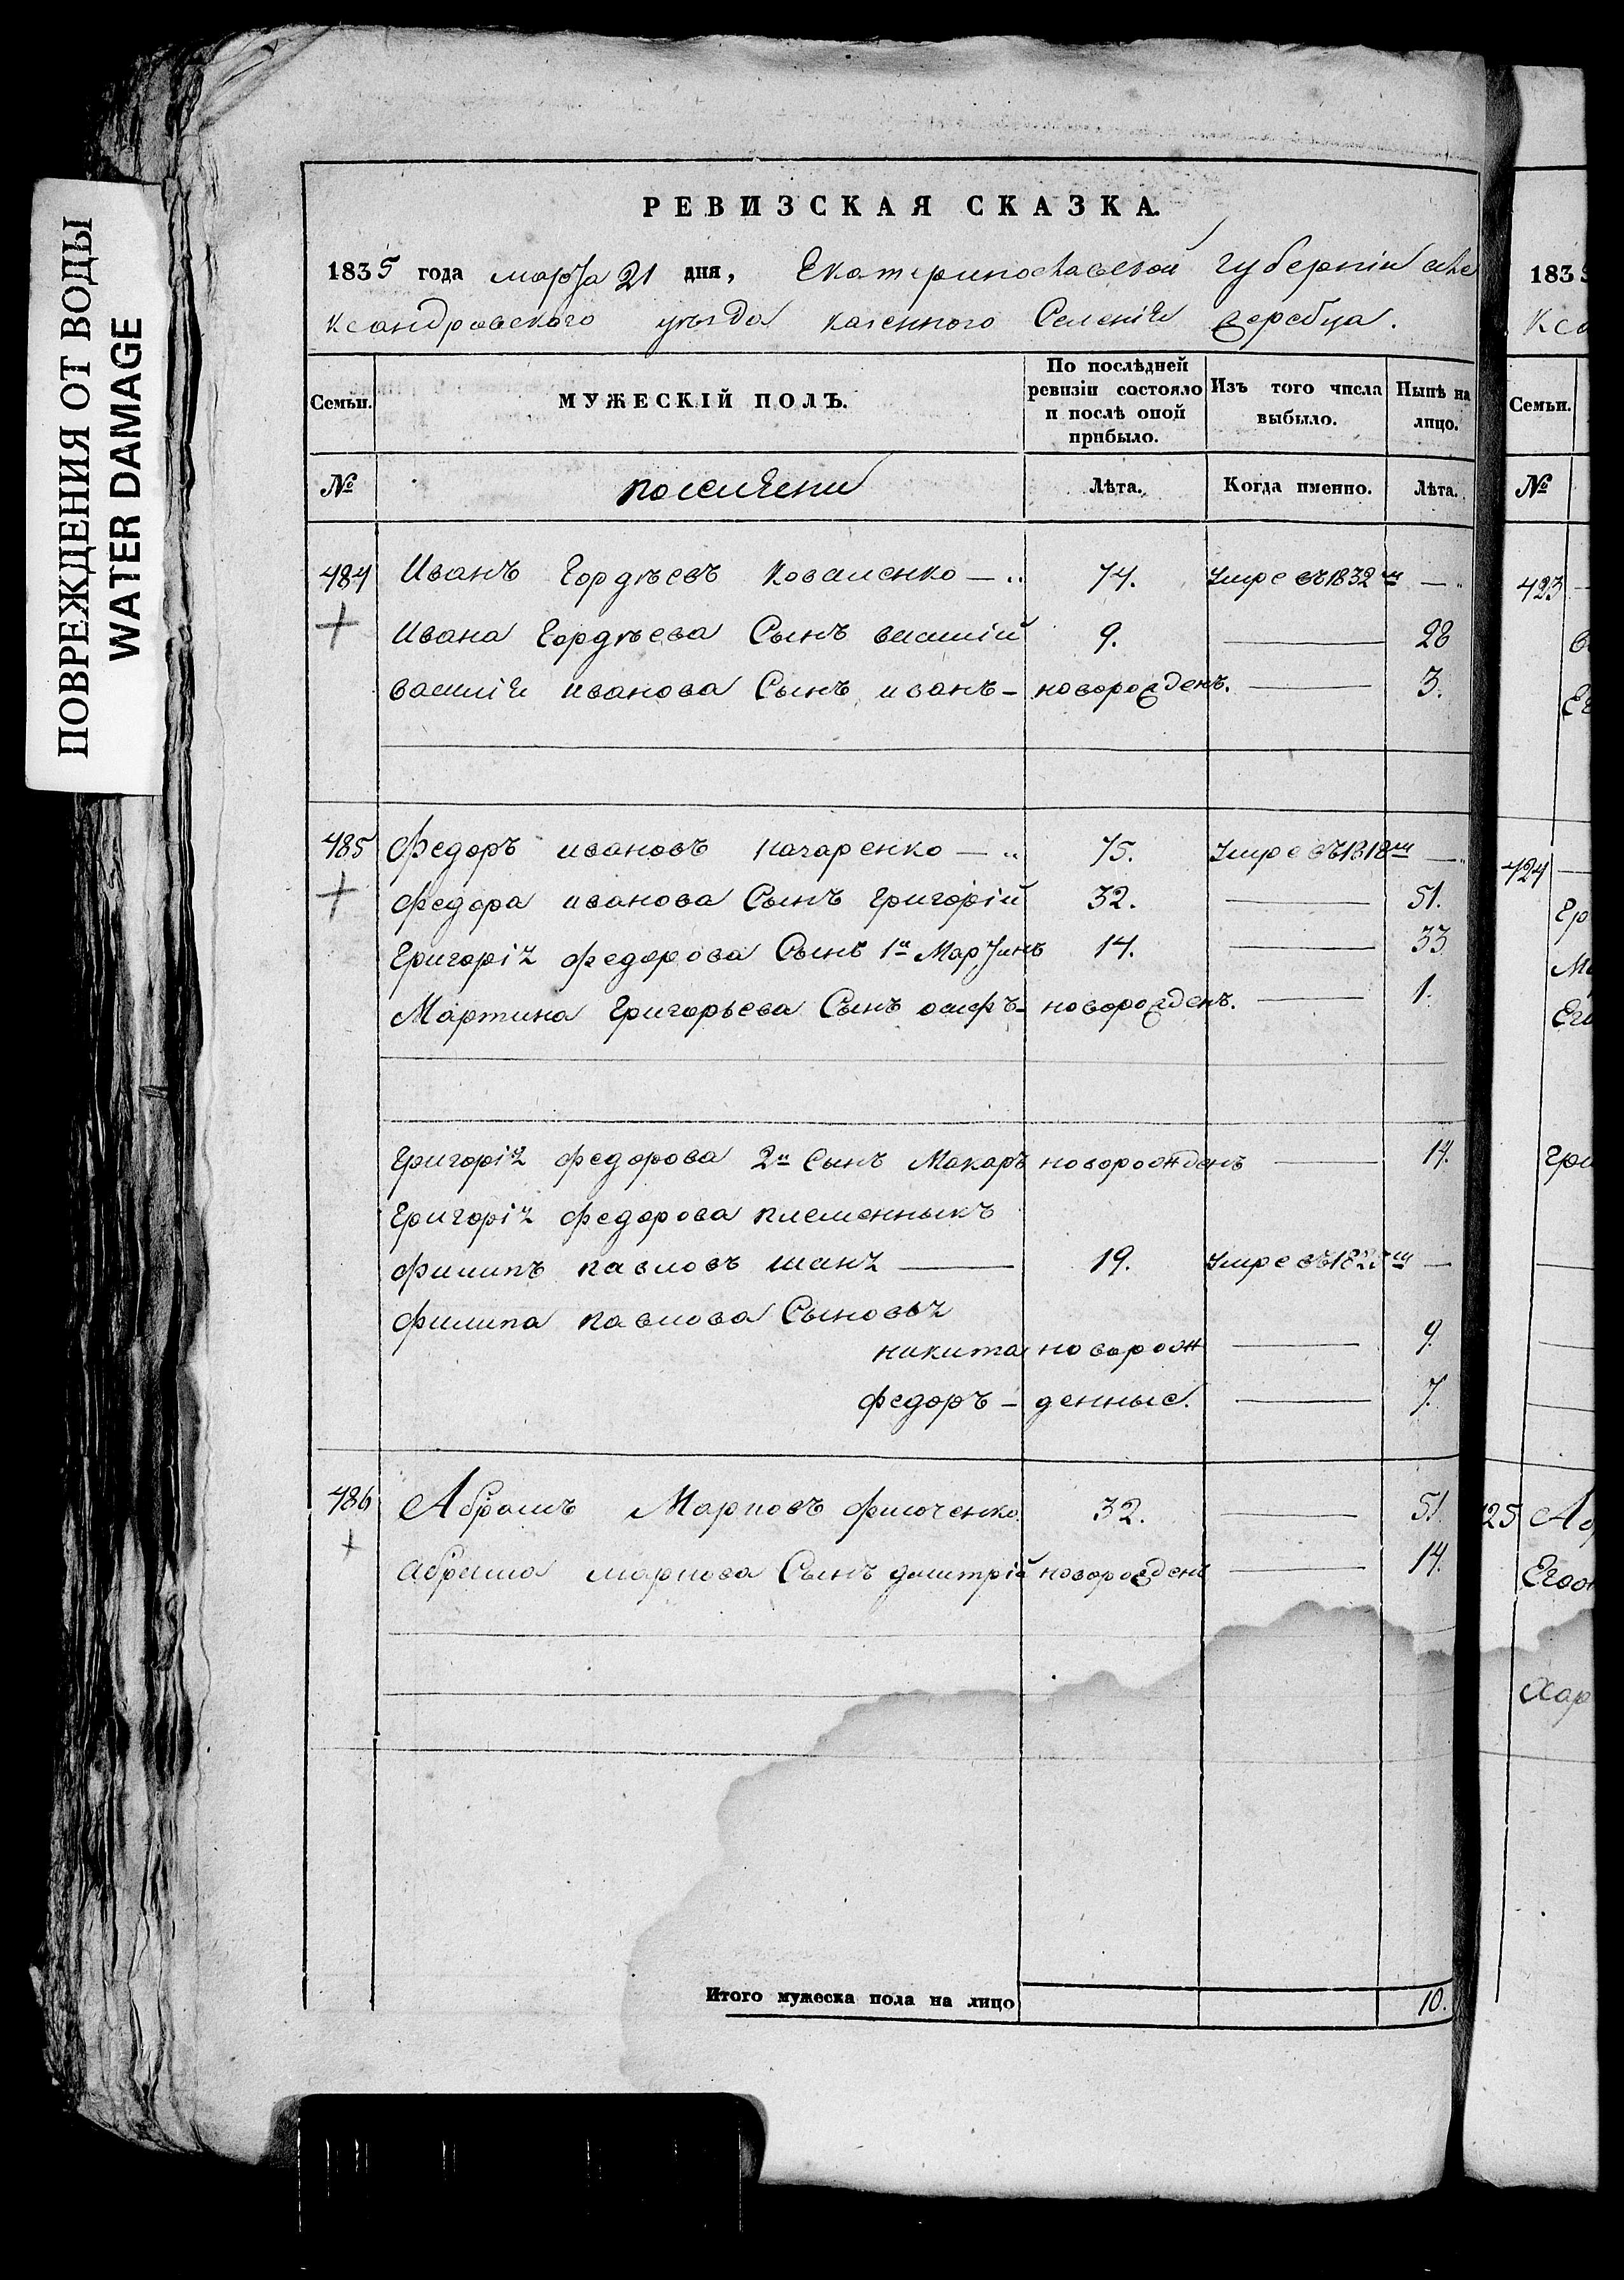 ПОВРЕЖДЕНИЯ ОТ ВОДЫ
WATER DAMAGE
РЕВИЗСКАЯ СКАЗКА.
1835 года марта 21 дня, Екатеринославской губернiи але
ксандровского уѣзда казенного Селенiя жеребца.
Семьи. МУЖЕСКІЙ ПОЛЪ. По послѣдней ревизіи состояло и послѣ оной прибыло. Изъ того числа выбыло. Нынѣ на лицо.
№ поселяни Лѣта. Когда именно. Лѣта.
484 Иванъ Гордѣевъ Коваленко — 74. Умре въ 1832м —
Ивана Гордѣева Сынъ василiй 9. — 28
василiя иванова Сынъ иванъ — новорожденъ. — 3.
485 Федоръ ивановъ — 75. Умре въ 1818м —
федора иванова Сынъ Григорiй 32. — 51.
Григорiя федорова Сынъ 1й Мартинъ 14. — 33
Мартина Григорьева Сынъ осифъ — новорожденъ. — 1.
Григорiя федорова 2й Сынъ Макаръ новорожденъ — 14.
Григорiя федорова племенникъ
филипъ павловъ — 19. Умре въ —
филипа павлова Сыновья
никита новорож — 9.
федоръ — денные. — 7.
486 Абрамъ Марковъ 32. — 51
Абрама маркова Сынъ дмитрiй новорожденъ — 14.
Итого мужеска пола на лицо 10.
183
Кса
Семьи.
№
423
424
Гри
Аб
Хар